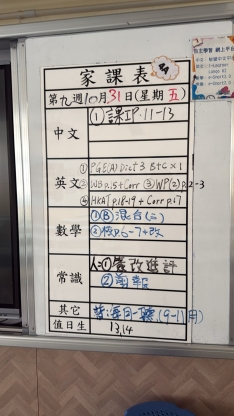 家課表
第九週10月31日(星期五)
中文
①課P.11-13
英文
①PGE(A) Dict 3 B+C×1
②WB p.15+Corr ③WP(2)p.2-3
④HKAT p.18-19 + Corr p.17
數學
①(B)混合(二)
p.6-7+改
常識
②剪報
其它
(9-11月)
值日生
13,14
自主學習 網上平台